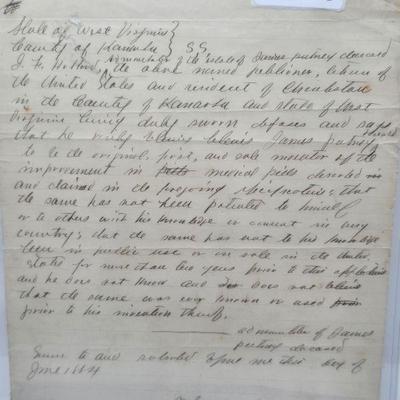 State of West Virginia }
County of Kanawha } SS.
administrator of the estate of James Putney deceased
the above named petitioner, citizen of
the United States and resident of Charleston
in the County of Kanawha and State of West
Virginia being duly sworn deposes and says
that he verily believes James Putney deceased
to be the original, first, and sole inventor of the
improvement in medical pads described
and claimed in the foregoing specification; that
the same has not been patented to himself
or to others with his knowledge or consent in any
country; that the same has not to his knowledge
been in public use or on sale in the United
States for more than two years prior to this application
and he does not know and does not believe
that the same was ever known or used
prior to his invention thereof.
administrator of James
Putney deceased
Sworn to and subscribed before me this day of
June 1884